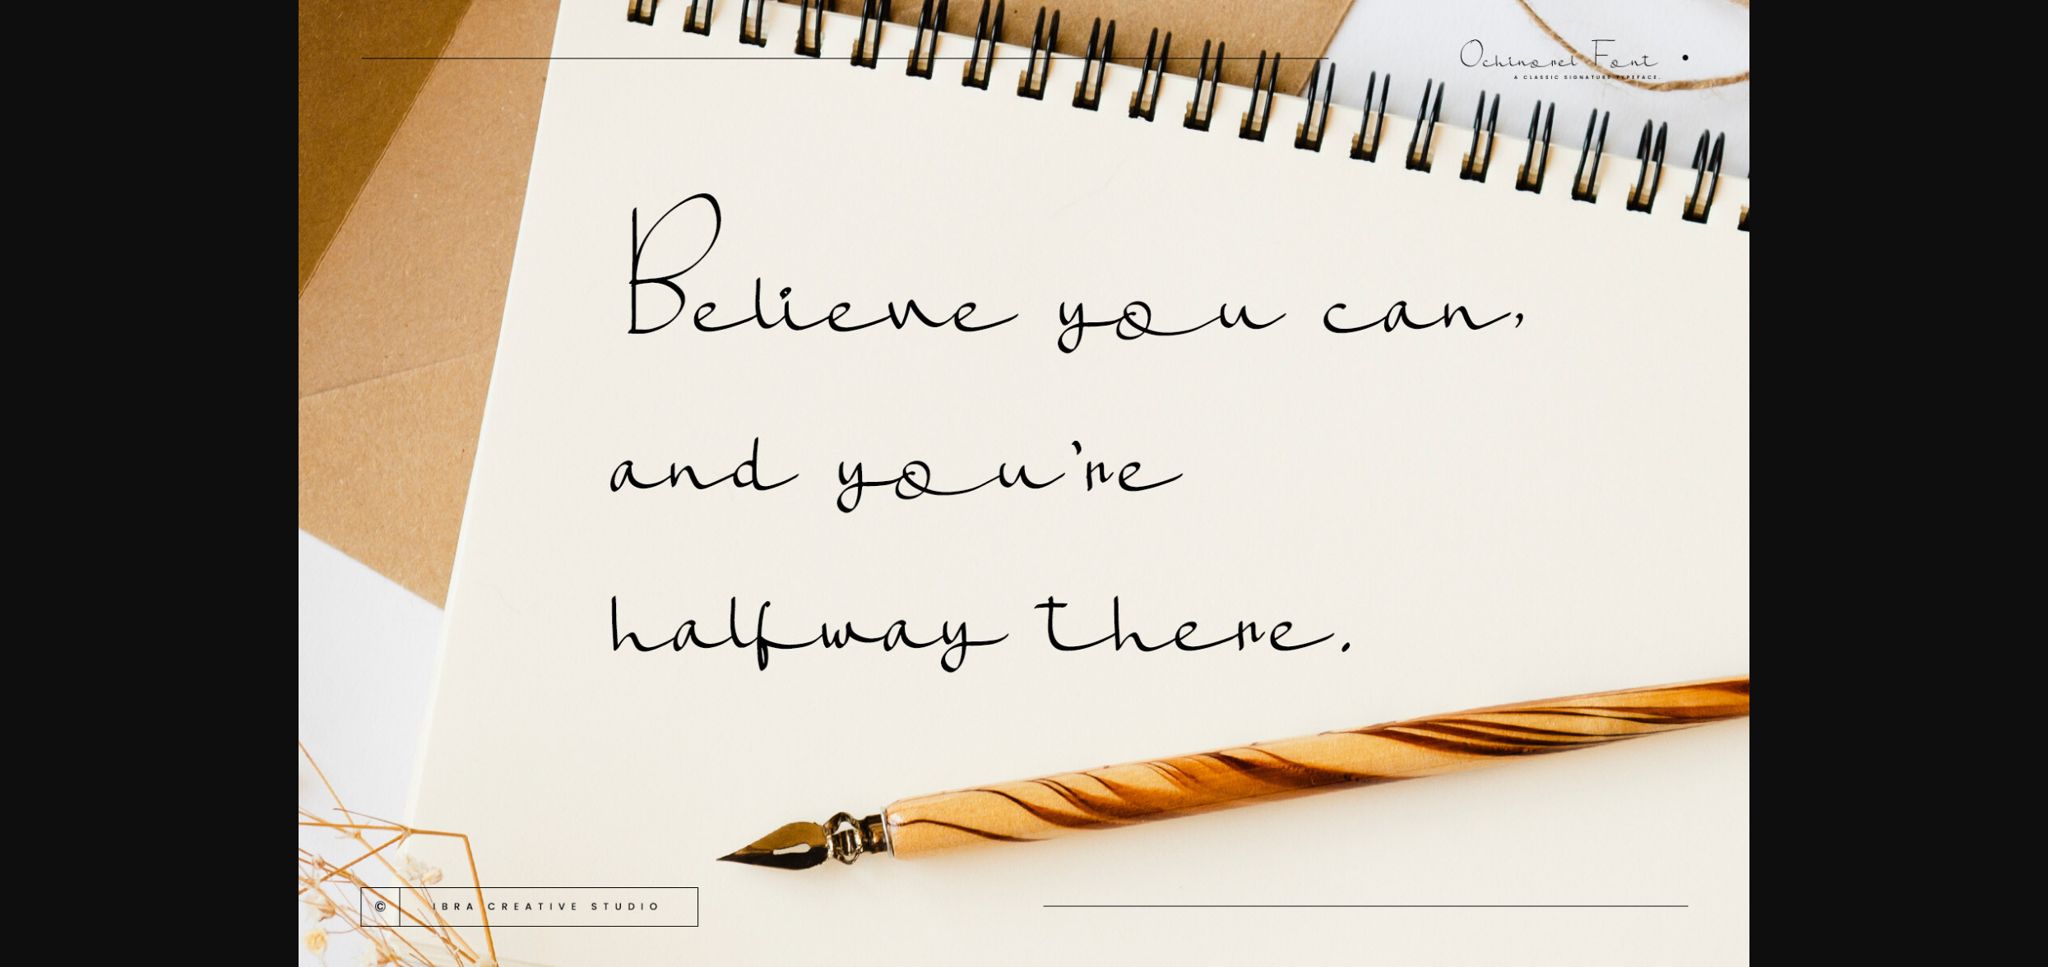 Ochinorel Font
A CLASSIC SIGNATURE TYPEFACE.
Believe you can,
and you're
halfway there.
© IBRA CREATIVE STUDIO